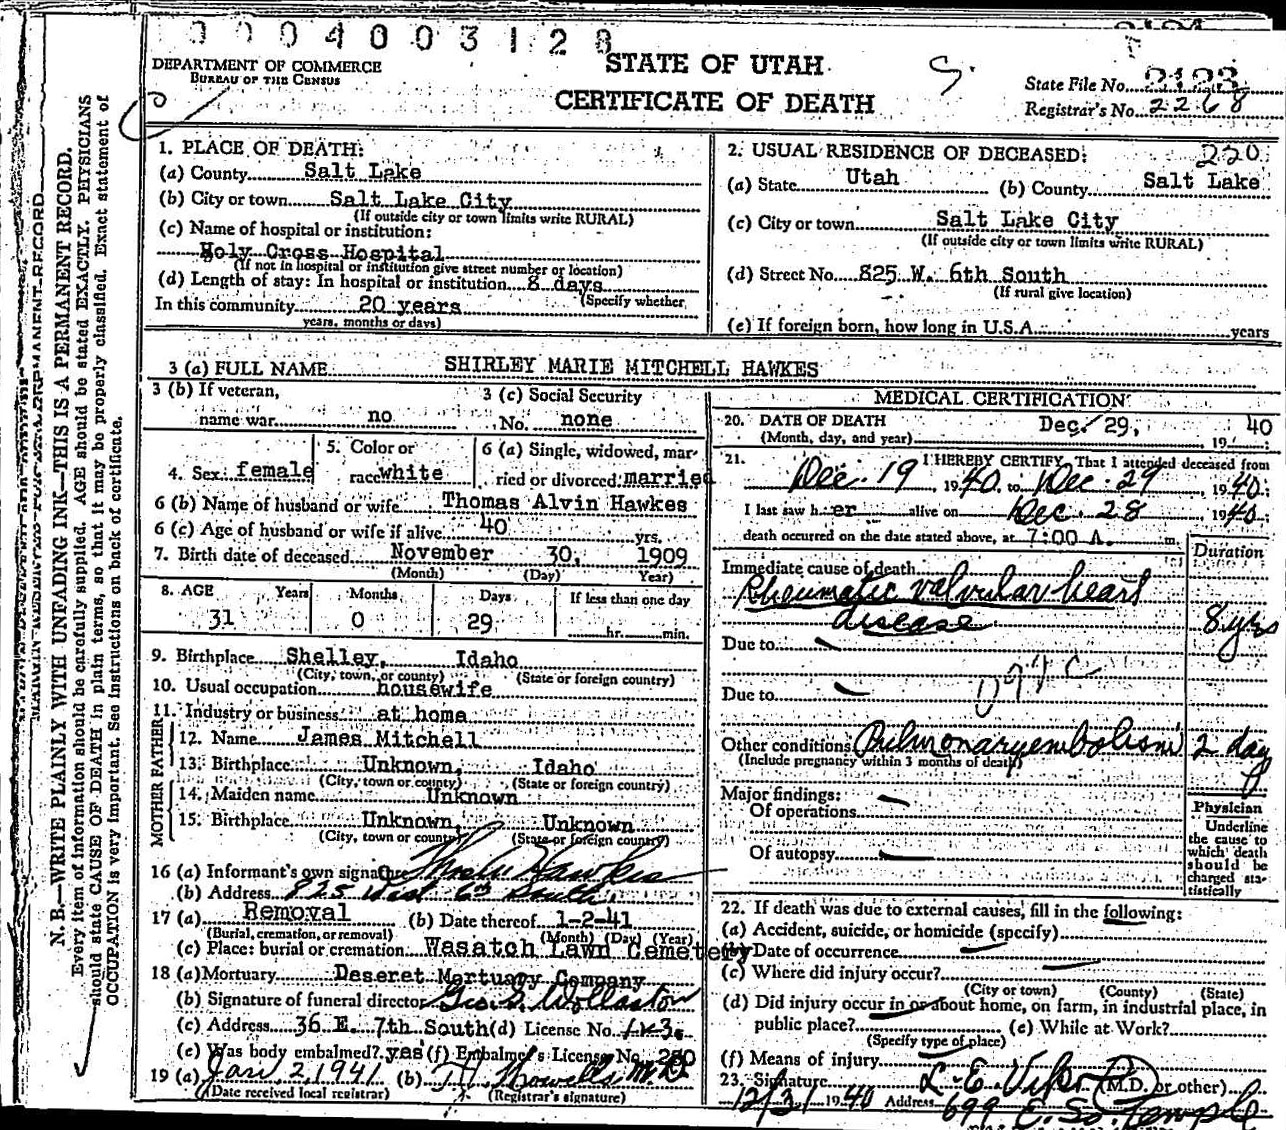 0004003128
DEPARTMENT OF COMMERCE
BUREAU OF THE CENSUS
STATE OF UTAH
CERTIFICATE OF DEATH
State File No.
Registrar's No. 2268
N. B.—WRITE PLAINLY WITH UNFADING INK—THIS IS A PERMANENT RECORD.
Every item of information should be carefully supplied. AGE should be stated EXACTLY. PHYSICIANS
should state CAUSE OF DEATH in plain terms, so that it may be properly classified. Exact statement of
OCCUPATION is very important. See instructions on back of certificate.
1. PLACE OF DEATH:
(a) County Salt Lake
(b) City or town Salt Lake City
(If outside city or town limits write RURAL)
(c) Name of hospital or institution:
Holy Cross Hospital
(If not in hospital or institution give street number or location)
(d) Length of stay: In hospital or institution 8 days
(Specify whether
In this community 20 years
years, months or days)
2. USUAL RESIDENCE OF DECEASED: 220
(a) State Utah (b) County Salt Lake
(c) City or town Salt Lake City
(If outside city or town limits write RURAL)
(d) Street No. 825 W. 6th South
(If rural give location)
(e) If foreign born, how long in U.S.A. years
3 (a) FULL NAME SHIRLEY MARIE MITCHELL HAWKES
3 (b) If veteran,
name war no
3 (c) Social Security
No. none
4. Sex female
5. Color or
race white
6 (a) Single, widowed, mar-
ried or divorced married
6 (b) Name of husband or wife Thomas Alvin Hawkes
6 (c) Age of husband or wife if alive 40 yrs.
7. Birth date of deceased November 30, 1909
(Month) (Day) Year)
8. AGE Years Months Days If less than one day
31 0 29 hr. min.
9. Birthplace Shelley, Idaho
(City, town, or county) (State or foreign country)
10. Usual occupation housewife
11. Industry or business at home
FATHER
12. Name James Mitchell
13. Birthplace Unknown, Idaho
(City, town or county) (State or foreign country)
MOTHER
14. Maiden name Unknown
15. Birthplace Unknown, Unknown
(City, town or county) (State or foreign country)
16 (a) Informant's own signature Hawkes
(b) Address 825 West 6th South
17 (a) Removal (b) Date thereof 1-2-41
(Burial, cremation, or removal) (Month) (Day) (Year)
(c) Place: burial or cremation Wasatch Lawn Cemetery
18 (a) Mortuary Deseret Mortuary Company
(b) Signature of funeral director Geo. S. Wollaston
(c) Address 36 E. 7th South (d) License No.
(e) Was body embalmed? yes (f) Embalmer's License No. 250
19 (a) Jan 2, 1941 (b) M.D.
(Date received local registrar) (Registrar's signature)
MEDICAL CERTIFICATION
20. DATE OF DEATH Dec. 29, 1940
(Month, day, and year)
21. I HEREBY CERTIFY, That I attended deceased from
Dec. 19, 1940, to Dec. 29, 1940;
I last saw her alive on Dec. 28 1940;
death occurred on the date stated above, at 7:00 A. m.
Duration
Immediate cause of death
Rheumatic valvular heart
disease 8 yrs
Due to
Due to
Other conditions Pulmonary embolism 2 day
(Include pregnancy within 3 months of death)
Major findings:
Of operations
Of autopsy
Physician
Underline
the cause to
which death
should be
charged sta-
tistically
22. If death was due to external causes, fill in the following:
(a) Accident, suicide, or homicide (specify)
(b) Date of occurrence
(c) Where did injury occur?
(City or town) (County) (State)
(d) Did injury occur in or about home, on farm, in industrial place, in
public place? (e) While at Work?
(Specify type of place)
(f) Means of injury
23. Signature L. E. (M.D. or other)
12/31 1940 Address 699 E. So. Temple